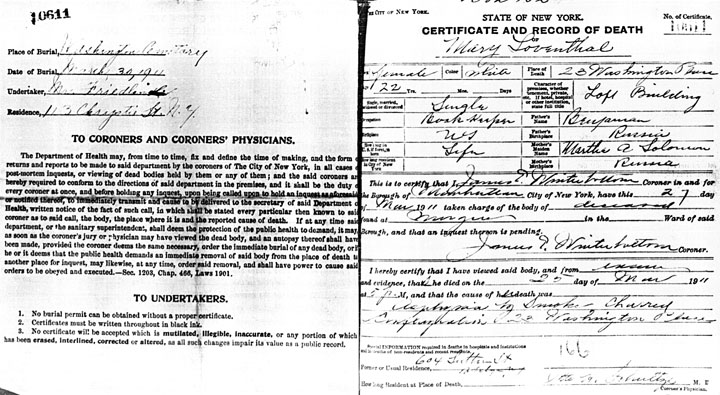 10611
Place of Burial, Washington Cemetery
Date of Burial, March 30, 1911
Undertaker,
Residence, 113 N.Y.
TO CORONERS AND CORONERS' PHYSICIANS.
The Department of Health may, from time to time, fix and define the time of making, and the form of
returns and reports to be made to said department by the coroners of The City of New York, in all cases of
post-mortem inquests, or viewing of dead bodies held by them or any of them; and the said coroners are
hereby required to conform to the directions of said department in the premises, and it shall be the duty of
every coroner at once, and before holding any inquest, upon being called upon to hold an inquest as aforesaid
or notified thereof, to immediately transmit and cause to be delivered to the secretary of said Department of
Health, written notice of the fact of such call, in which shall be stated every particular then known to said
coroner as to said call, the body, the place where it is and the reported cause of death. If at any time said
department, or the sanitary superintendent, shall deem the protection of the public health to demand, it may,
as soon as the coroner's jury or physician may have viewed the dead body, and an autopsy thereof shall have
been made, provided the coroner deems the same necessary, order the immediate burial of any dead body, or if
he or it deems that the public health demands an immediate removal of said body from the place of death to
another place for inquest, may likewise, at any time, order said removal, and shall have power to cause said
orders to be obeyed and executed.—Sec. 1203, Chap. 466, Laws 1901.
TO UNDERTAKERS.
1. No burial permit can be obtained without a proper certificate.
2. Certificates must be written throughout in black ink.
3. No certificate will be accepted which is mutilated, illegible, inaccurate, or any portion of which
has been erased, interlined, corrected or altered, as all such changes impair its value as a public record.
The City of New York.
STATE OF NEW YORK.
No. of Certificate,
CERTIFICATE AND RECORD OF DEATH
OF
10611
Mary Loventhal
Female Color White Place of Death 23 Washington Place
22 Yrs. Mos. Days
Character of premises, whether tenement, private, etc. If hotel, hospital or other institution, state full title
Loft Building
Single, married, widowed or divorced
Single
Book Keeper
Father's Name Benjaman
Birthplace US
Father's Birthplace Russia
Life
Mother's Maiden Name Martha A Solomon
Mother's Birthplace Russia
This is to certify that I, James E Winterbottom Coroner in and for
the Borough of Manhattan City of New York, have this 27 day
of Mar 1911 taken charge of the body of deceased
found at Morgue in the Ward of said
Borough, and that an inquest thereon is pending.
James E. Winterbottom Coroner.
I hereby certify that I have viewed said body, and from
and evidence, that he died on the 25 day of Mar 1911
at 5 P.M, and that the cause of h death was
Asphyxia by Smoke - Charred
Conflagration @ 23 Washington Place
166
Special INFORMATION required in deaths in hospitals and institutions
and in deaths of non-residents and recent residents.
Former or Usual Residence, 604 Sutter St
How long Resident at Place of Death, M. D.
Coroner's Physician.